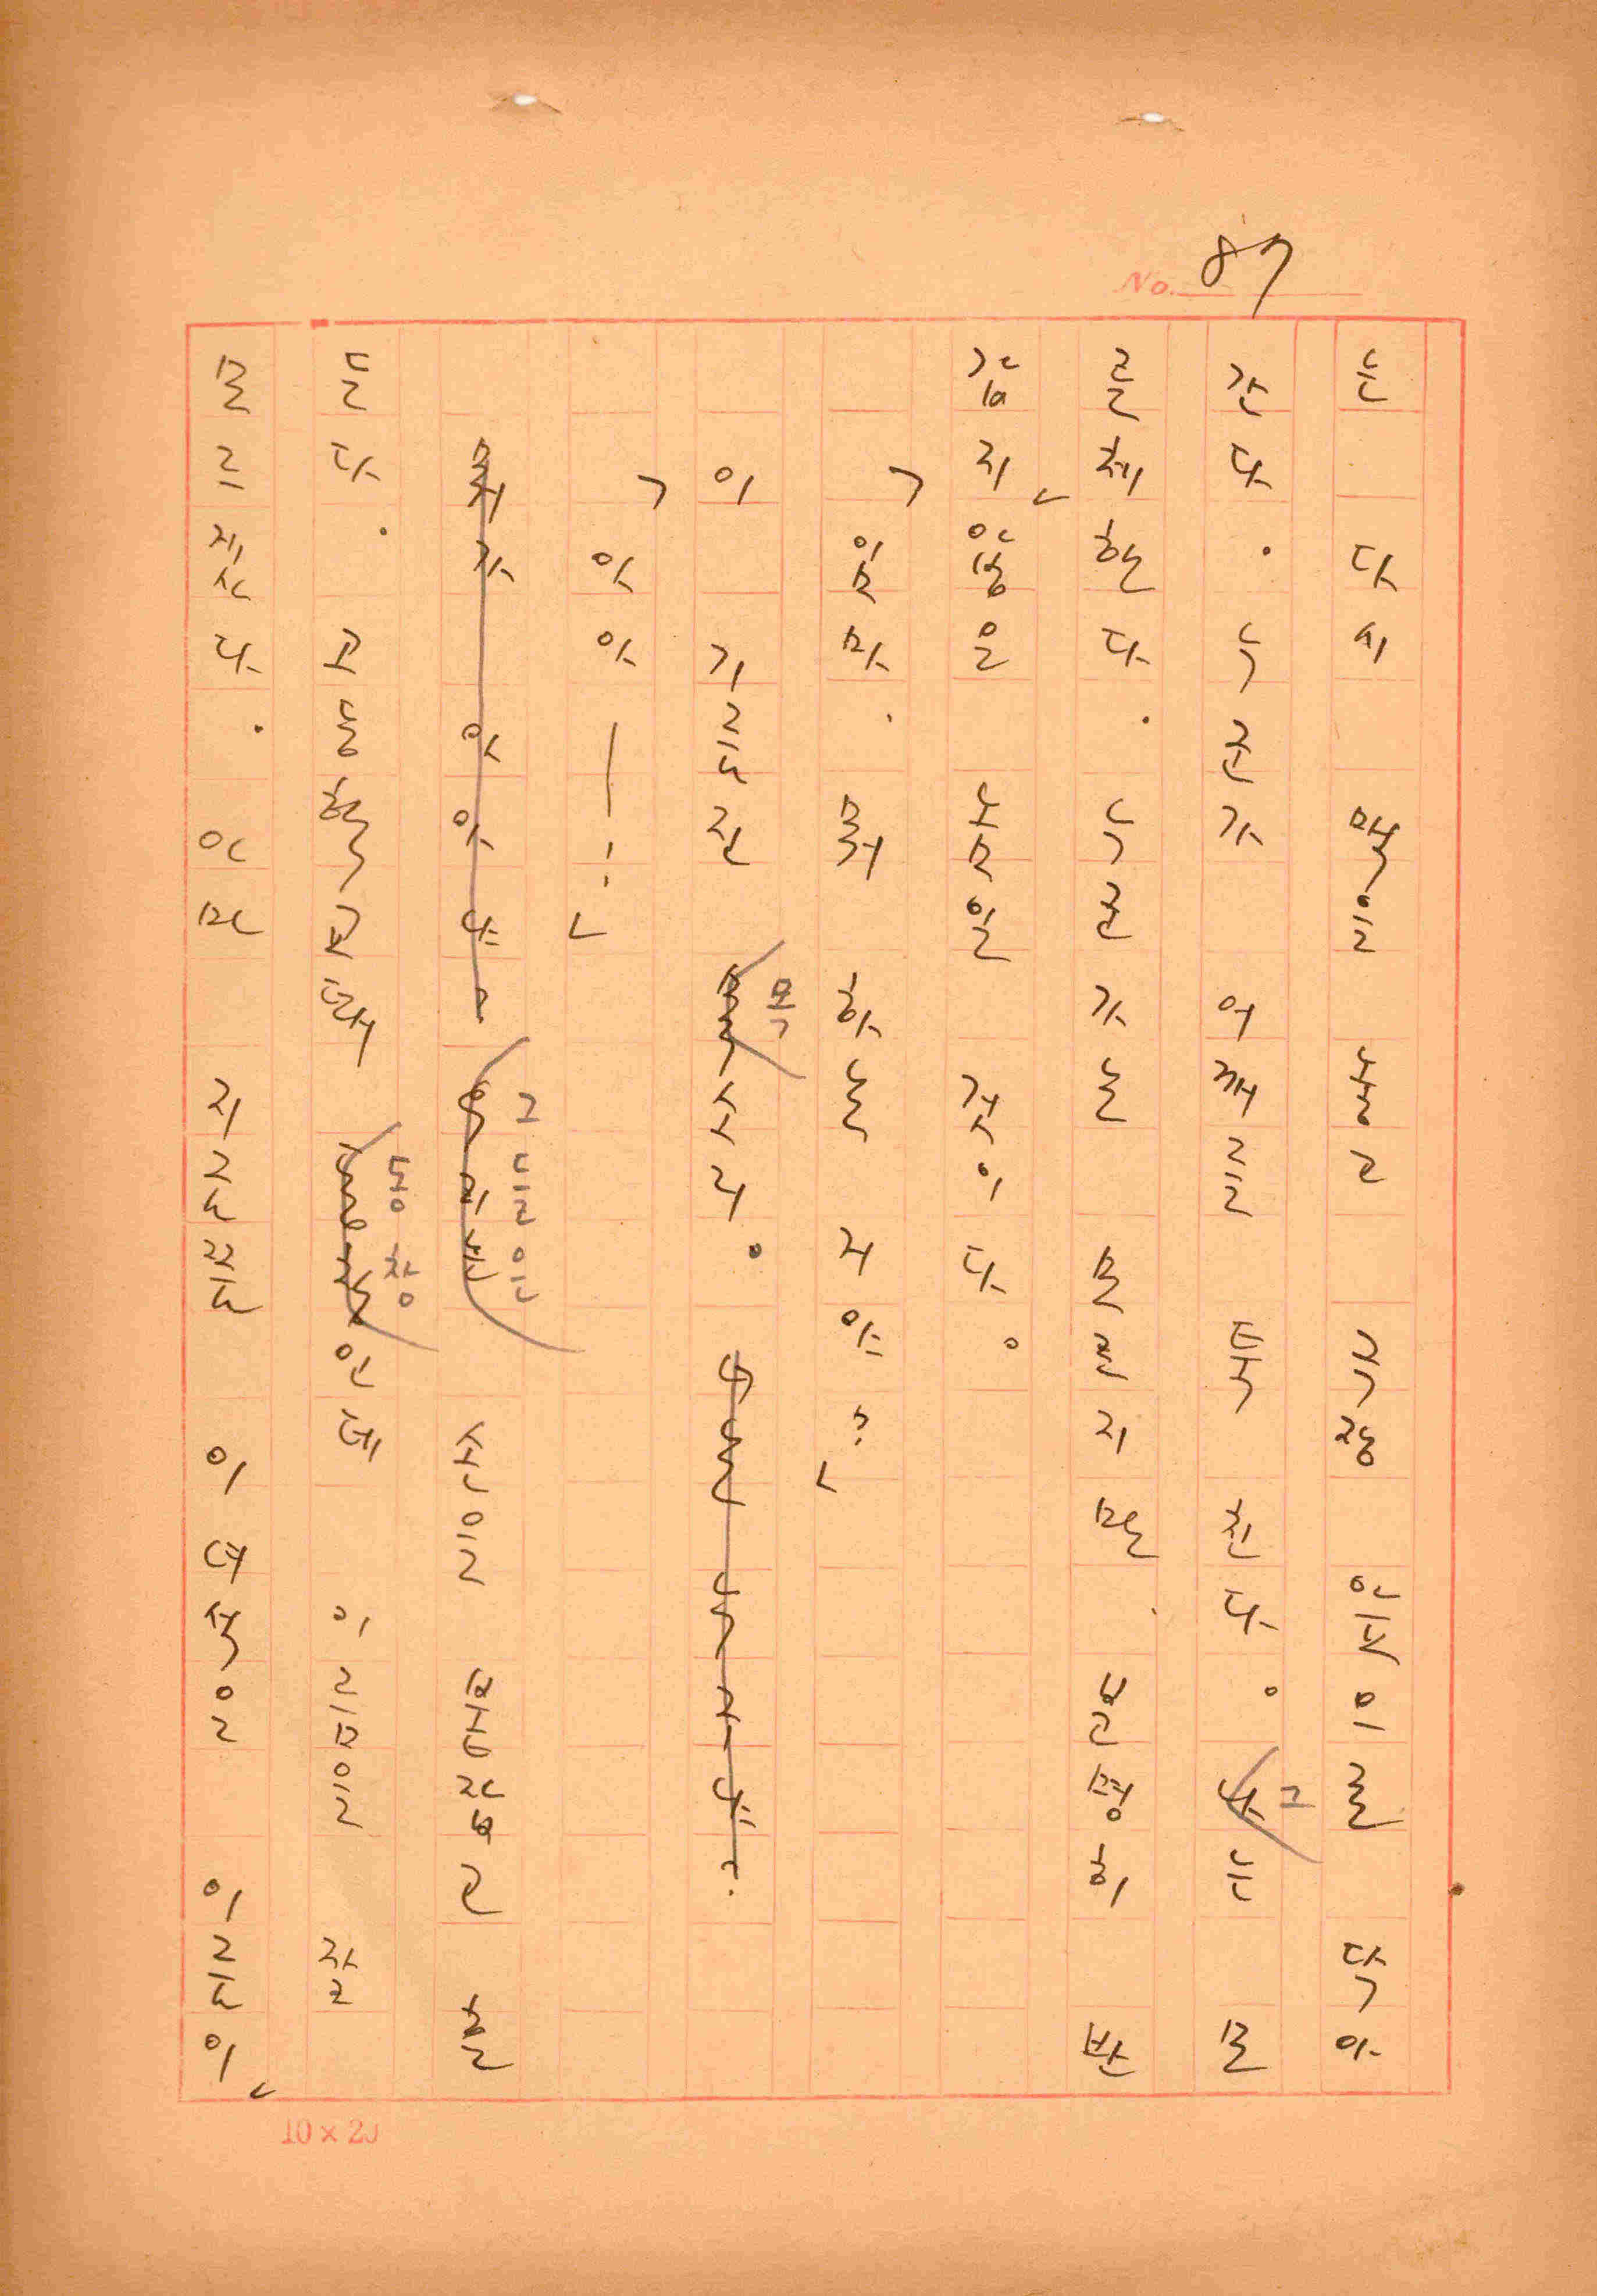 No. 87
는 다시 맥을 놓고 극장 안쪽으로 닥아
간다. 누군가 어깨를 툭 친다. 그는 모
른체 한다. 누군가는 모르지만, 분명히 반
갑지 않은 놈일 것이다.
「임마, 뭐 하는 거야?」
이 기름진 목소리.
「아아―!」
뭐가 아아냐 그들은 손을 붙잡고 흔
든다. 고등학교때 동창인데 이름을 잘
모르겠다. 아마 지금쯤 이 녀석은 이름이
10×20